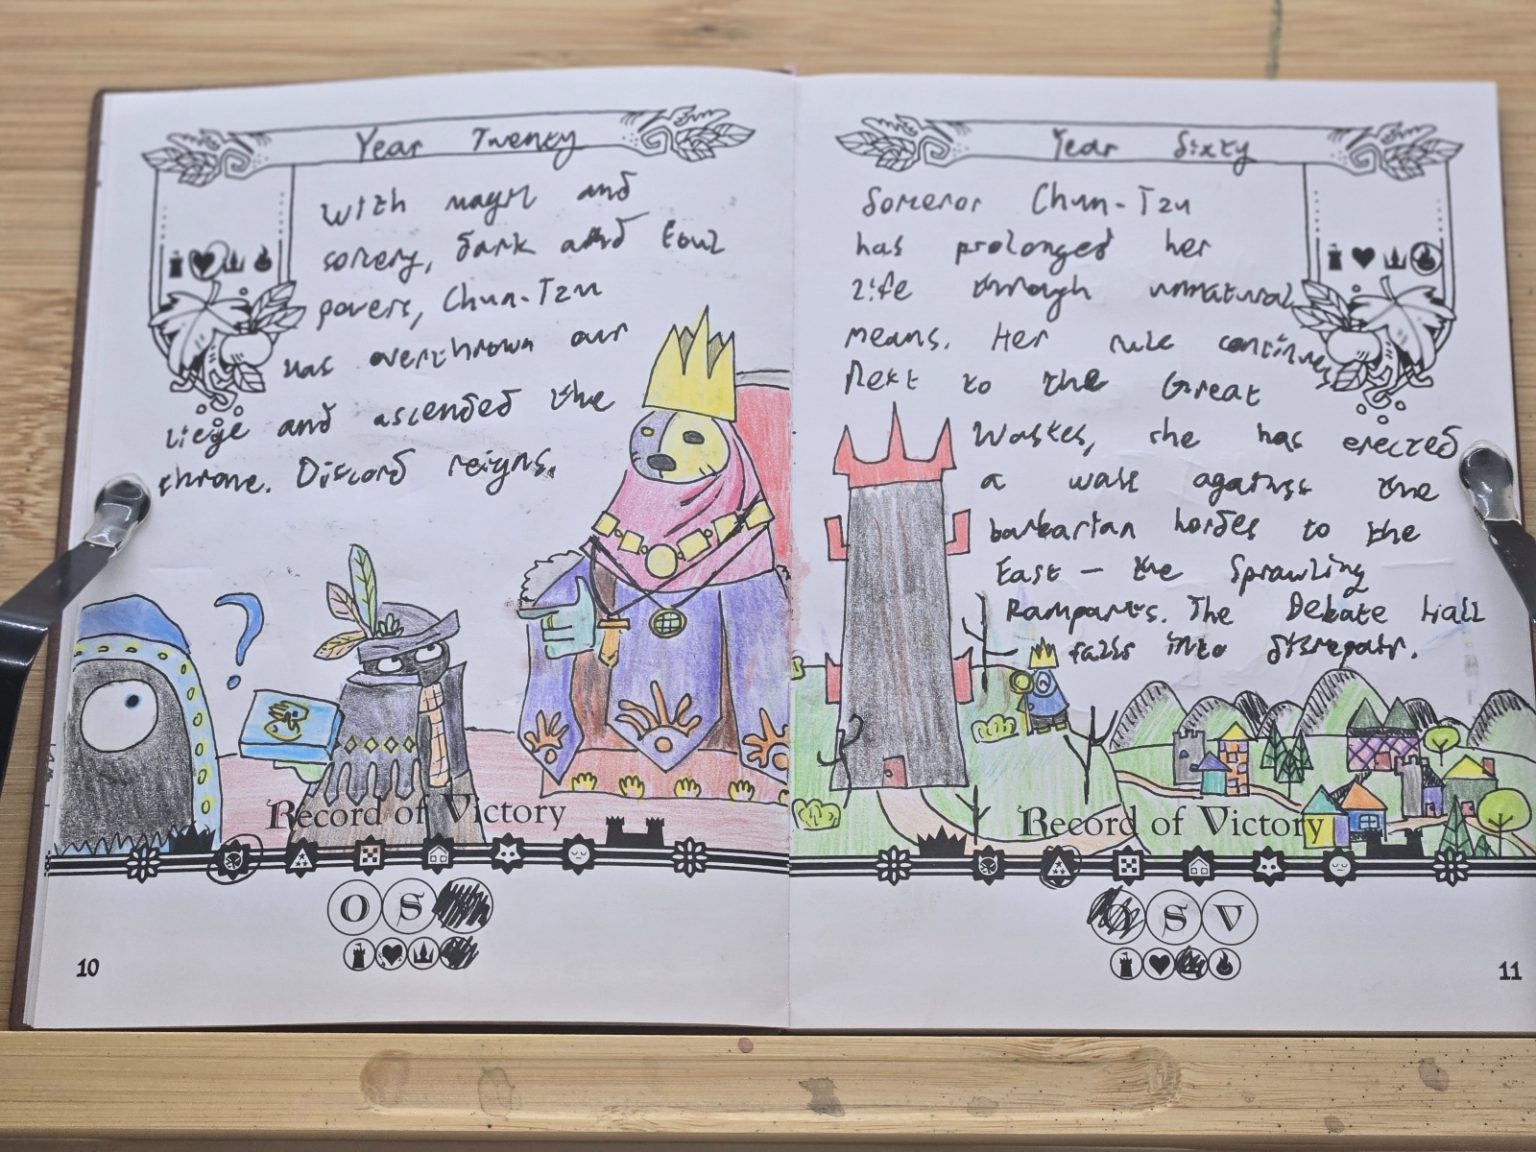 Year Twenty
With magic and
sorcery, dark and foul
powers, Chun-Tzu
has overthrown our
liege and ascended the
throne. Discord reigns.
?
Record of Victory
O S
10
Year Sixty
Sorceror Chun-Tzu
has prolonged her
life through unnatural
means. Her rule continues
Next to the Great
Wastes, she has erected
a wall against the
barbarian hordes to the
East – the Sprawling
Ramparts. The Debate Hall
falls into disrepair.
Record of Victory
S V
11